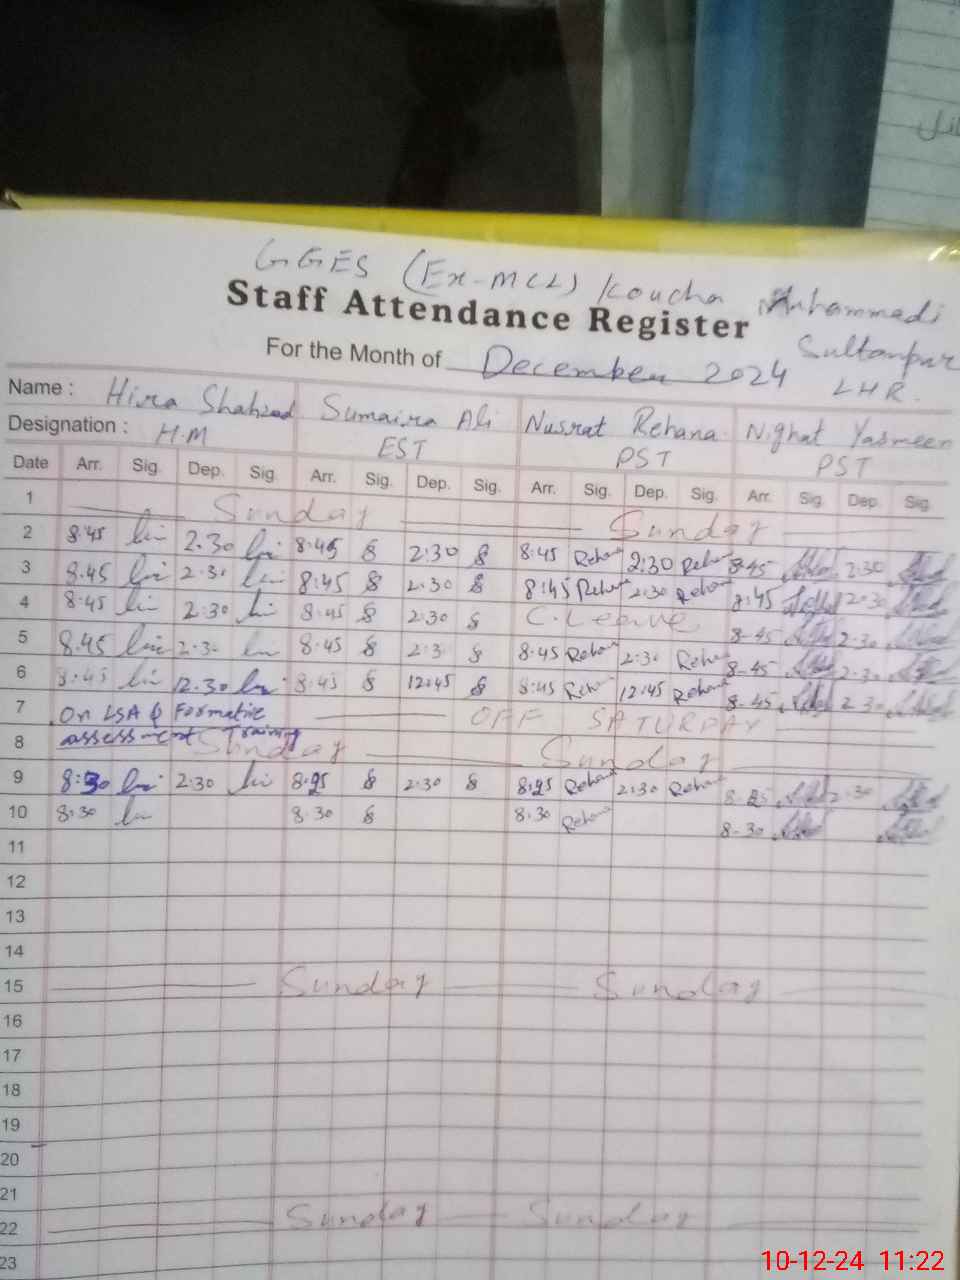 GGES (Ex-MCL) Koucha Muhammadi
Sultanpur
LHR.
Staff Attendance Register
For the Month of December 2024
Name : Hira Shahzad Sumaira Ali Nusrat Rehana Nighat Yasmeen
Designation : H.M EST PST PST
Date Arr. Sig. Dep. Sig. Arr. Sig. Dep. Sig. Arr. Sig. Dep. Sig. Arr. Sig. Dep. Sig.
1 Sunday Sunday
2 8:45 2:30 8:45 2:30 8:45 2:30 8:45 2:30
3 8.45 2:30 8:45 2:30 8:45 2:30 8:45 2:30
4 8:45 2:30 8:45 2:30 C.Leave 8-45 2-30
5 8.45 2:30 8:45 2:3 8:45 2:30 8-45 2.30
6 8:45 12.30 8:45 12:45 8:45 12:45 8-45 2 30
7 On LSA & Formative OFF SATURDAY
assessment Training
8 Sunday Sunday
9 8:30 2:30 8:25 2:30 8:25 2:30 8-25 2-30
10 8:30 8:30 8:30 8-30
11
12
13
14
15 Sunday Sunday
16
17
18
19
20
21
22 Sunday Sunday
23
10-12-24 11:22